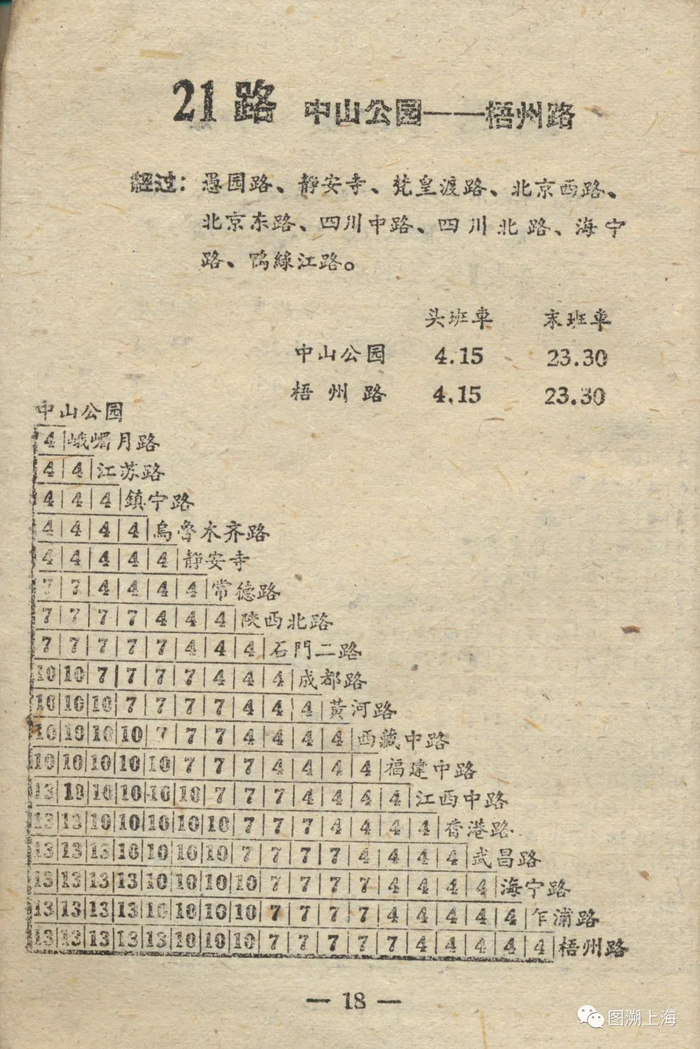 21路 中山公园——梧州路
经过：愚园路、静安寺、梵皇渡路、北京西路、
北京东路、四川中路、四川北路、海宁
路、鴨綠江路。
头班車 末班車
中山公园 4.15 23.30
梧州路 4.15 23.30
中山公园
4 峨嵋月路
4 4 江苏路
4 4 4 鎮宁路
4 4 4 4 烏魯木齐路
4 4 4 4 4 静安寺
7 7 4 4 4 4 常德路
7 7 7 7 4 4 4 陝西北路
7 7 7 7 7 4 4 4 石門二路
10 10 7 7 7 7 4 4 4 成都路
10 10 10 7 7 7 7 4 4 4 黃河路
10 10 10 10 7 7 7 4 4 4 4 西藏中路
10 10 10 10 10 7 7 7 4 4 4 4 福建中路
13 10 10 10 10 10 7 7 7 4 4 4 4 江西中路
13 13 10 10 10 10 10 7 7 7 4 4 4 4 香港路
13 13 13 10 10 10 10 7 7 7 7 4 4 4 4 武昌路
13 13 13 13 10 10 10 10 7 7 7 7 4 4 4 4 海宁路
13 13 13 13 10 10 10 10 7 7 7 7 4 4 4 4 4 乍浦路
13 13 13 13 13 10 10 10 7 7 7 7 7 4 4 4 4 4 梧州路
— 18 —
图溯上海